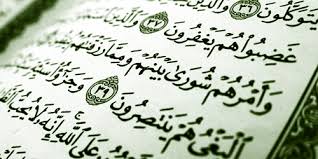 يَتَوَكَّلُونَ ٣٦ وَالَّذِينَ
غَضِبُوا۟ هُمْ يَغْفِرُونَ ٣٧ وَالَّذِينَ
وَأَمْرُهُمْ شُورَىٰ بَيْنَهُمْ وَمِمَّا رَزَقْنَٰهُمْ
الْبَغْىُ هُمْ يَنتَصِرُونَ ٣٩ وَجَزَٰٓؤُا۟
عَلَى اللَّهِ إِنَّهُۥ لَا يُحِبُّ